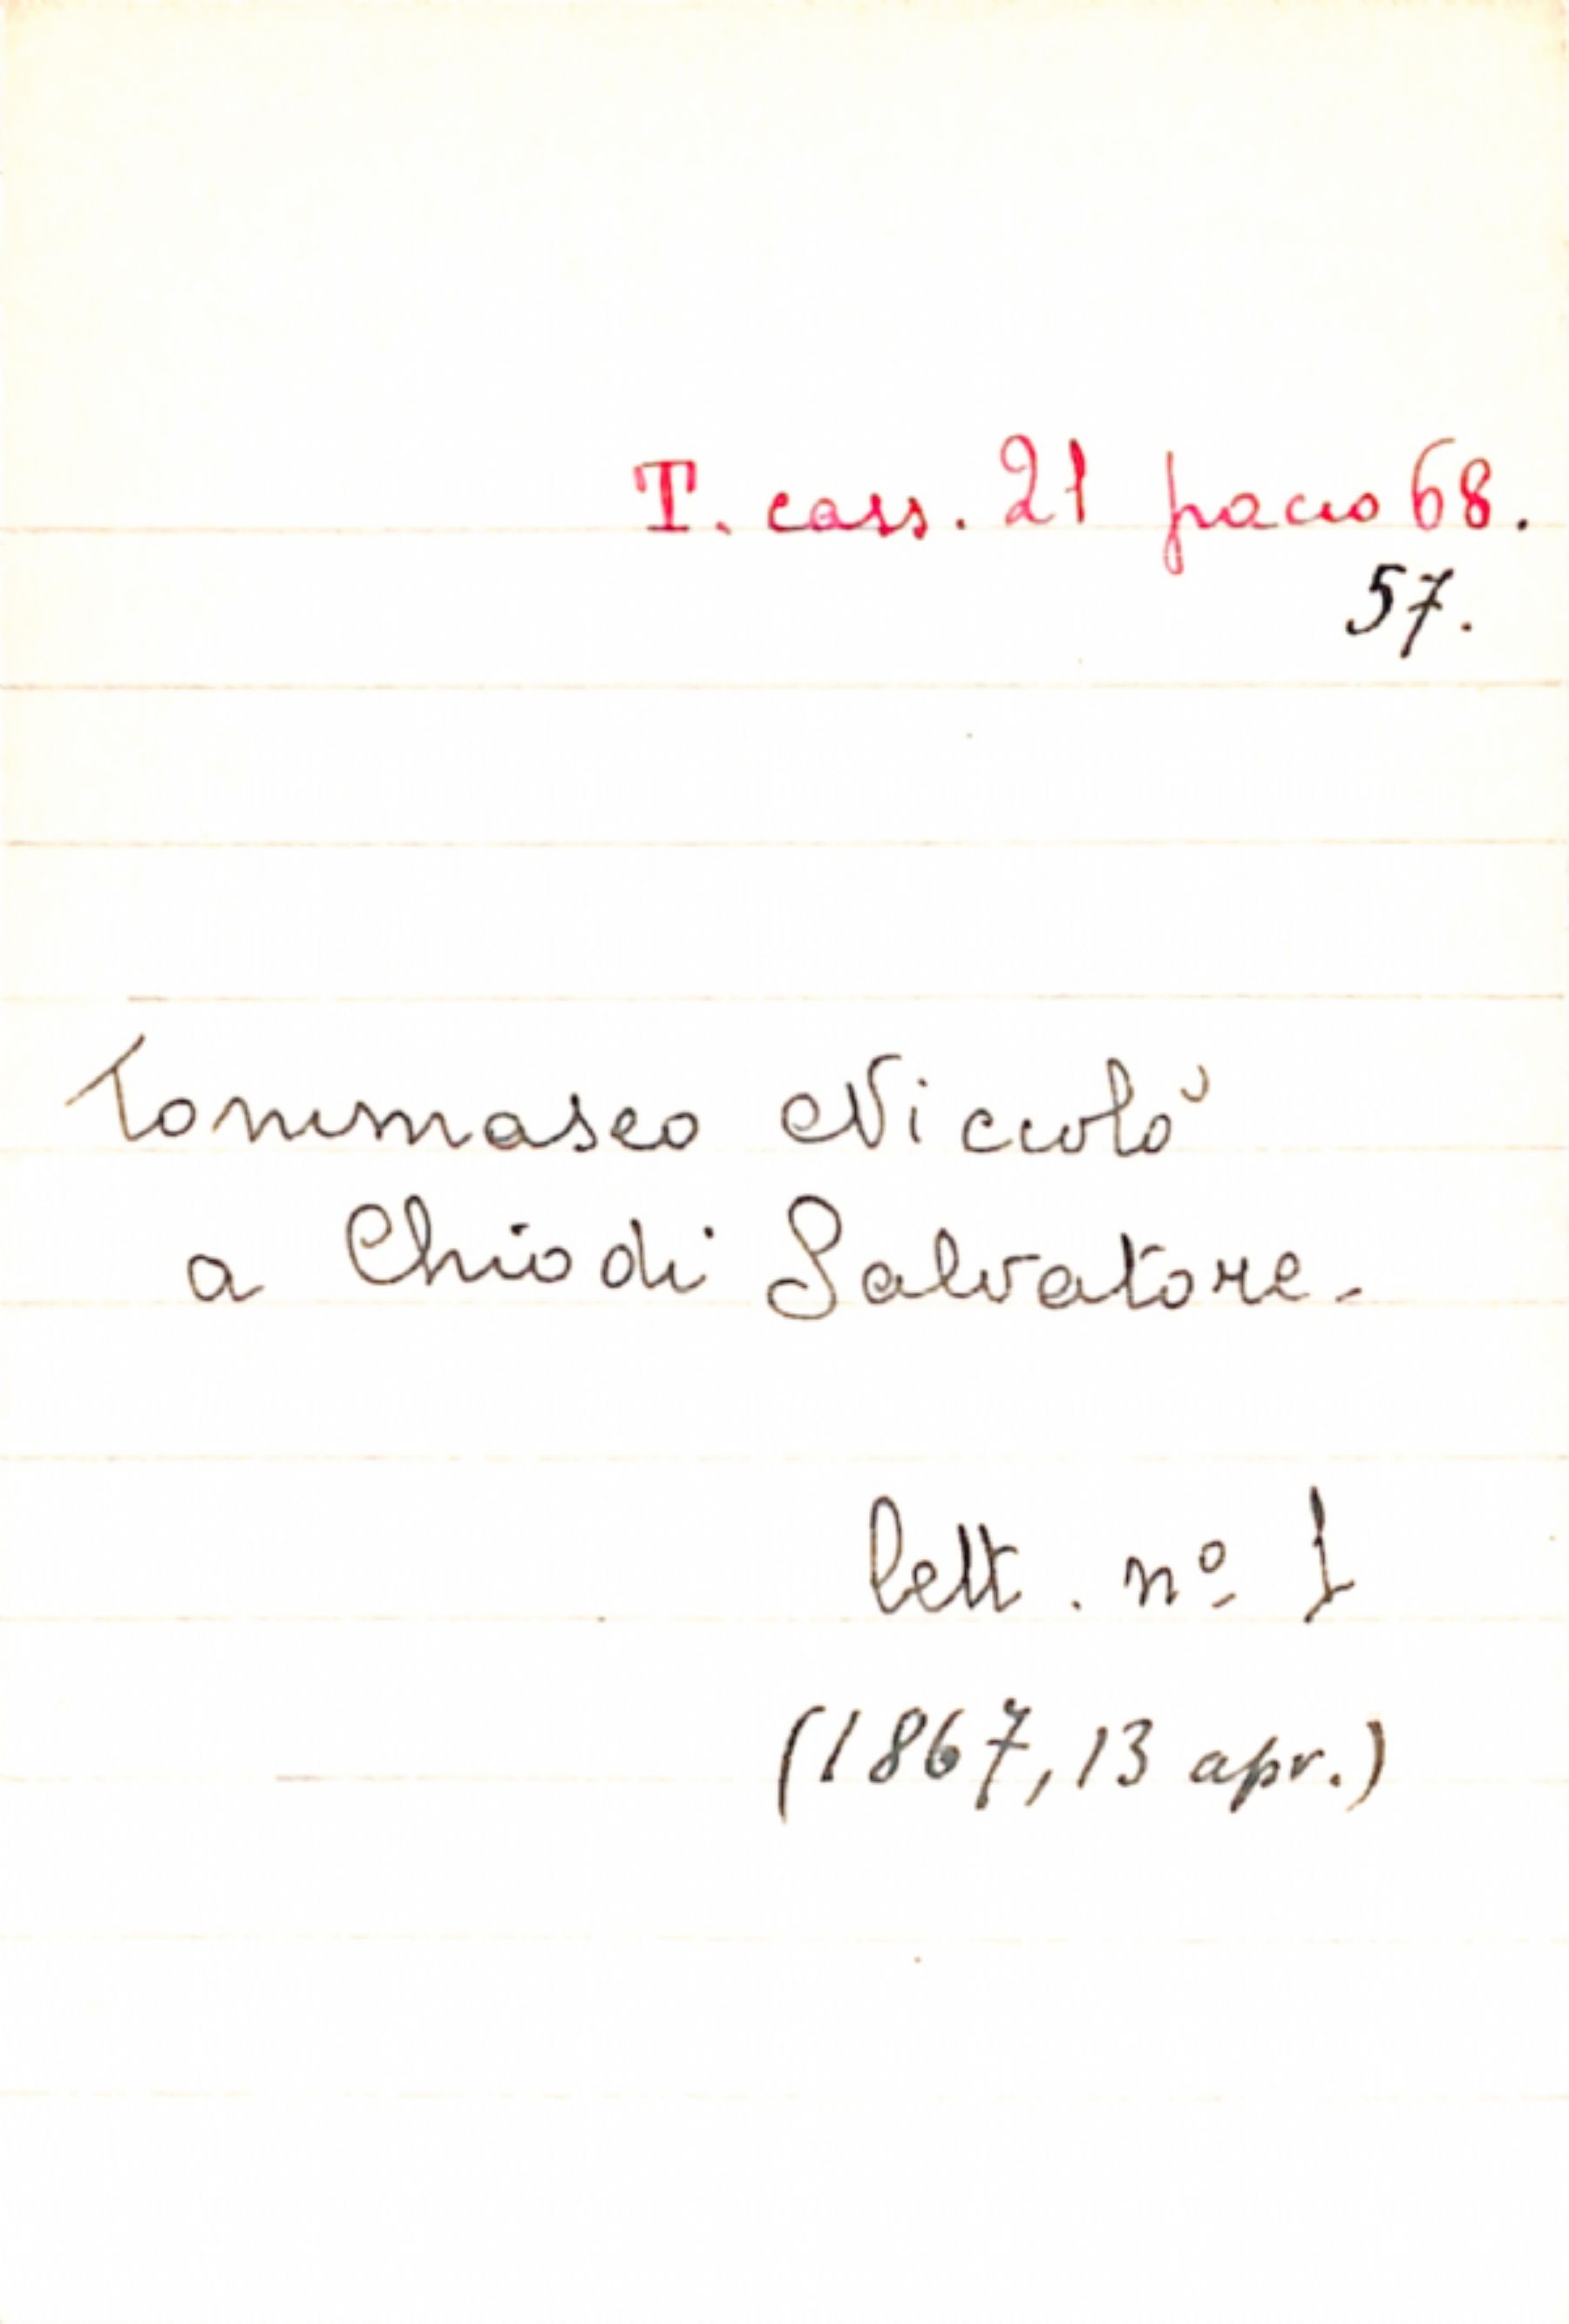 T. cass. 21 pacco 68.
57.
Tommaseo Niccolò
a Chiodi Salvatore.
lett. nº 1
(1867, 13 apr.)